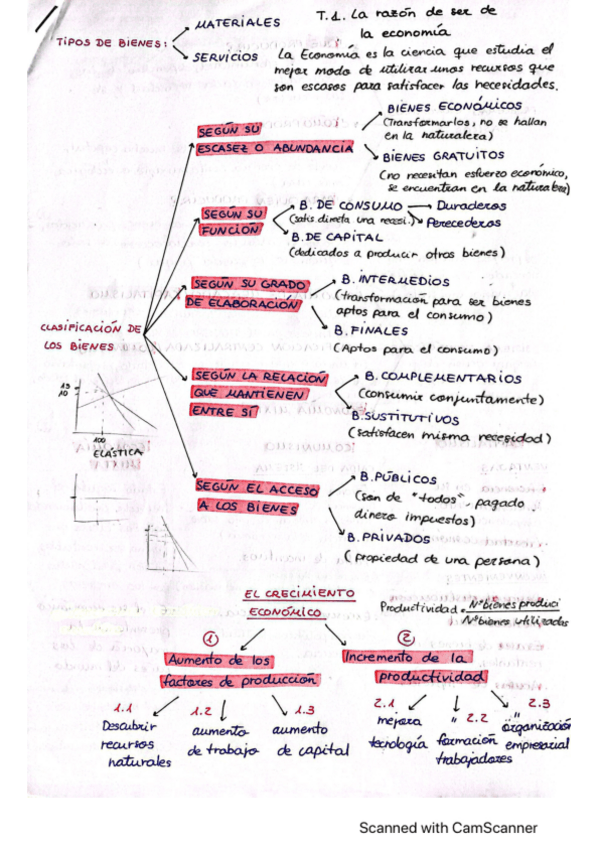 T.1. La razón de ser de
la economía
TIPOS DE BIENES:
MATERIALES
SERVICIOS
La Economía es la ciencia que estudia el
mejor modo de utilizar unos recursos que
son escasos para satisfacer las necesidades.
CLASIFICACIÓN DE
LOS BIENES
SEGÚN SU
ESCASEZ O ABUNDANCIA
BIENES ECONÓMICOS
(Transformarlos, no se hallan
en la naturaleza)
BIENES GRATUITOS
(no necesitan esfuerzo económico,
se encuentran en la naturaleza)
SEGÚN SU
FUNCIÓN
B. DE CONSUMO → Duraderos
(satis. directa una necesi.) Perecederos
B. DE CAPITAL
(dedicados a producir otros bienes)
SEGÚN SU GRADO
DE ELABORACIÓN
B. INTERMEDIOS
(transformación para ser bienes
aptos para el consumo)
B. FINALES
(Aptos para el consumo)
SEGÚN LA RELACIÓN
QUE MANTIENEN
ENTRE SÍ
B. COMPLEMENTARIOS
(consumir conjuntamente)
B. SUSTITUTIVOS
(satisfacen misma necesidad)
10
100
ELÁSTICA
SEGÚN EL ACCESO
A LOS BIENES
B. PÚBLICOS
(son de "todos", pagado
dinero impuestos)
B. PRIVADOS
(propiedad de una persona)
EL CRECIMIENTO
ECONÓMICO
Productividad = Nº bienes produci
Nº bienes utilizados
1
Aumento de los
factores de producción
2
Incremento de la
productividad
1.1
Descubrir
recursos
naturales
1.2
aumento
de trabajo
1.3
aumento
de capital
2.1
mejora
tecnología
" 2.2
formación
trabajadores
2.3
" organización
empresarial
Scanned with CamScanner